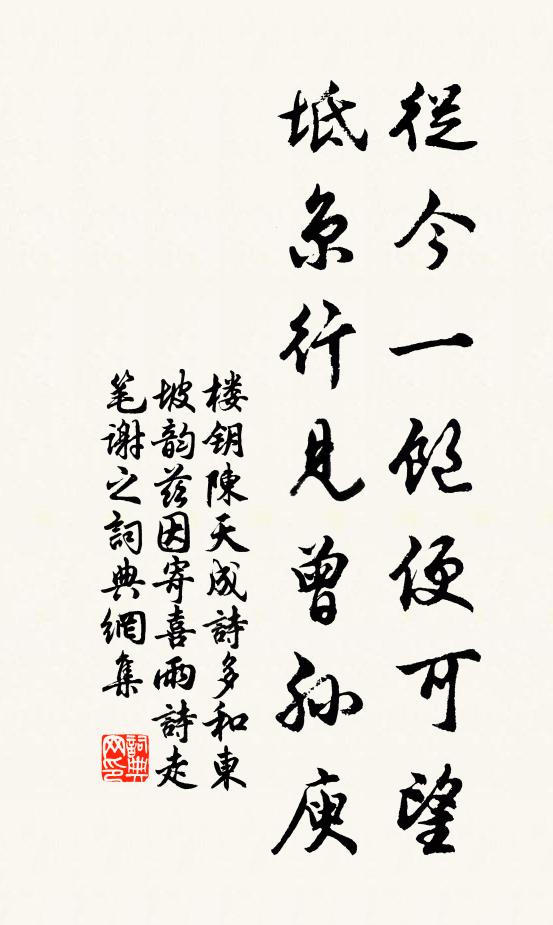 從今一飽便可望
坻京行見曾孫庾
楼钥陳天成詩多和東
坡韵茲因寄喜雨詩走
笔谢之詞典網集
詞典网印